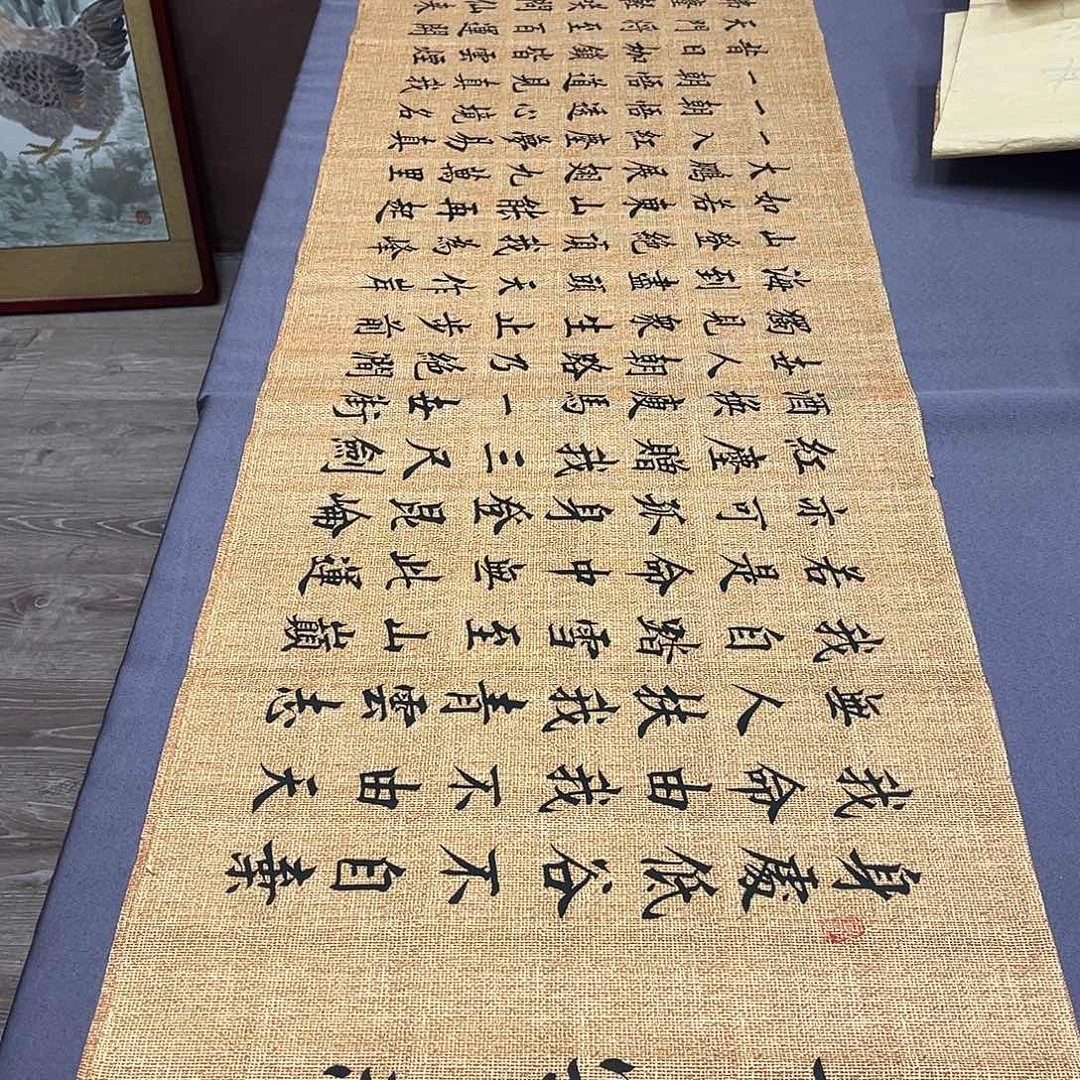 身處低谷不自棄
我命由我不由天
無人扶我青雲志
我自踏雪至山巔
若是命中無此運
亦可孤身登昆崙
紅塵贈我三尺劍
酒換瘦馬一世街
世人朝路乃絕澗
獨見衆生止步前
海到盡頭天作岸
山登絕頂我為峰
如若東山能再起
大鵬展翅九萬里
一入紅塵夢易真
一朝悟透心境名
一朝悟道見真我
昔日枷鎖皆雲煙
天門將至百運開